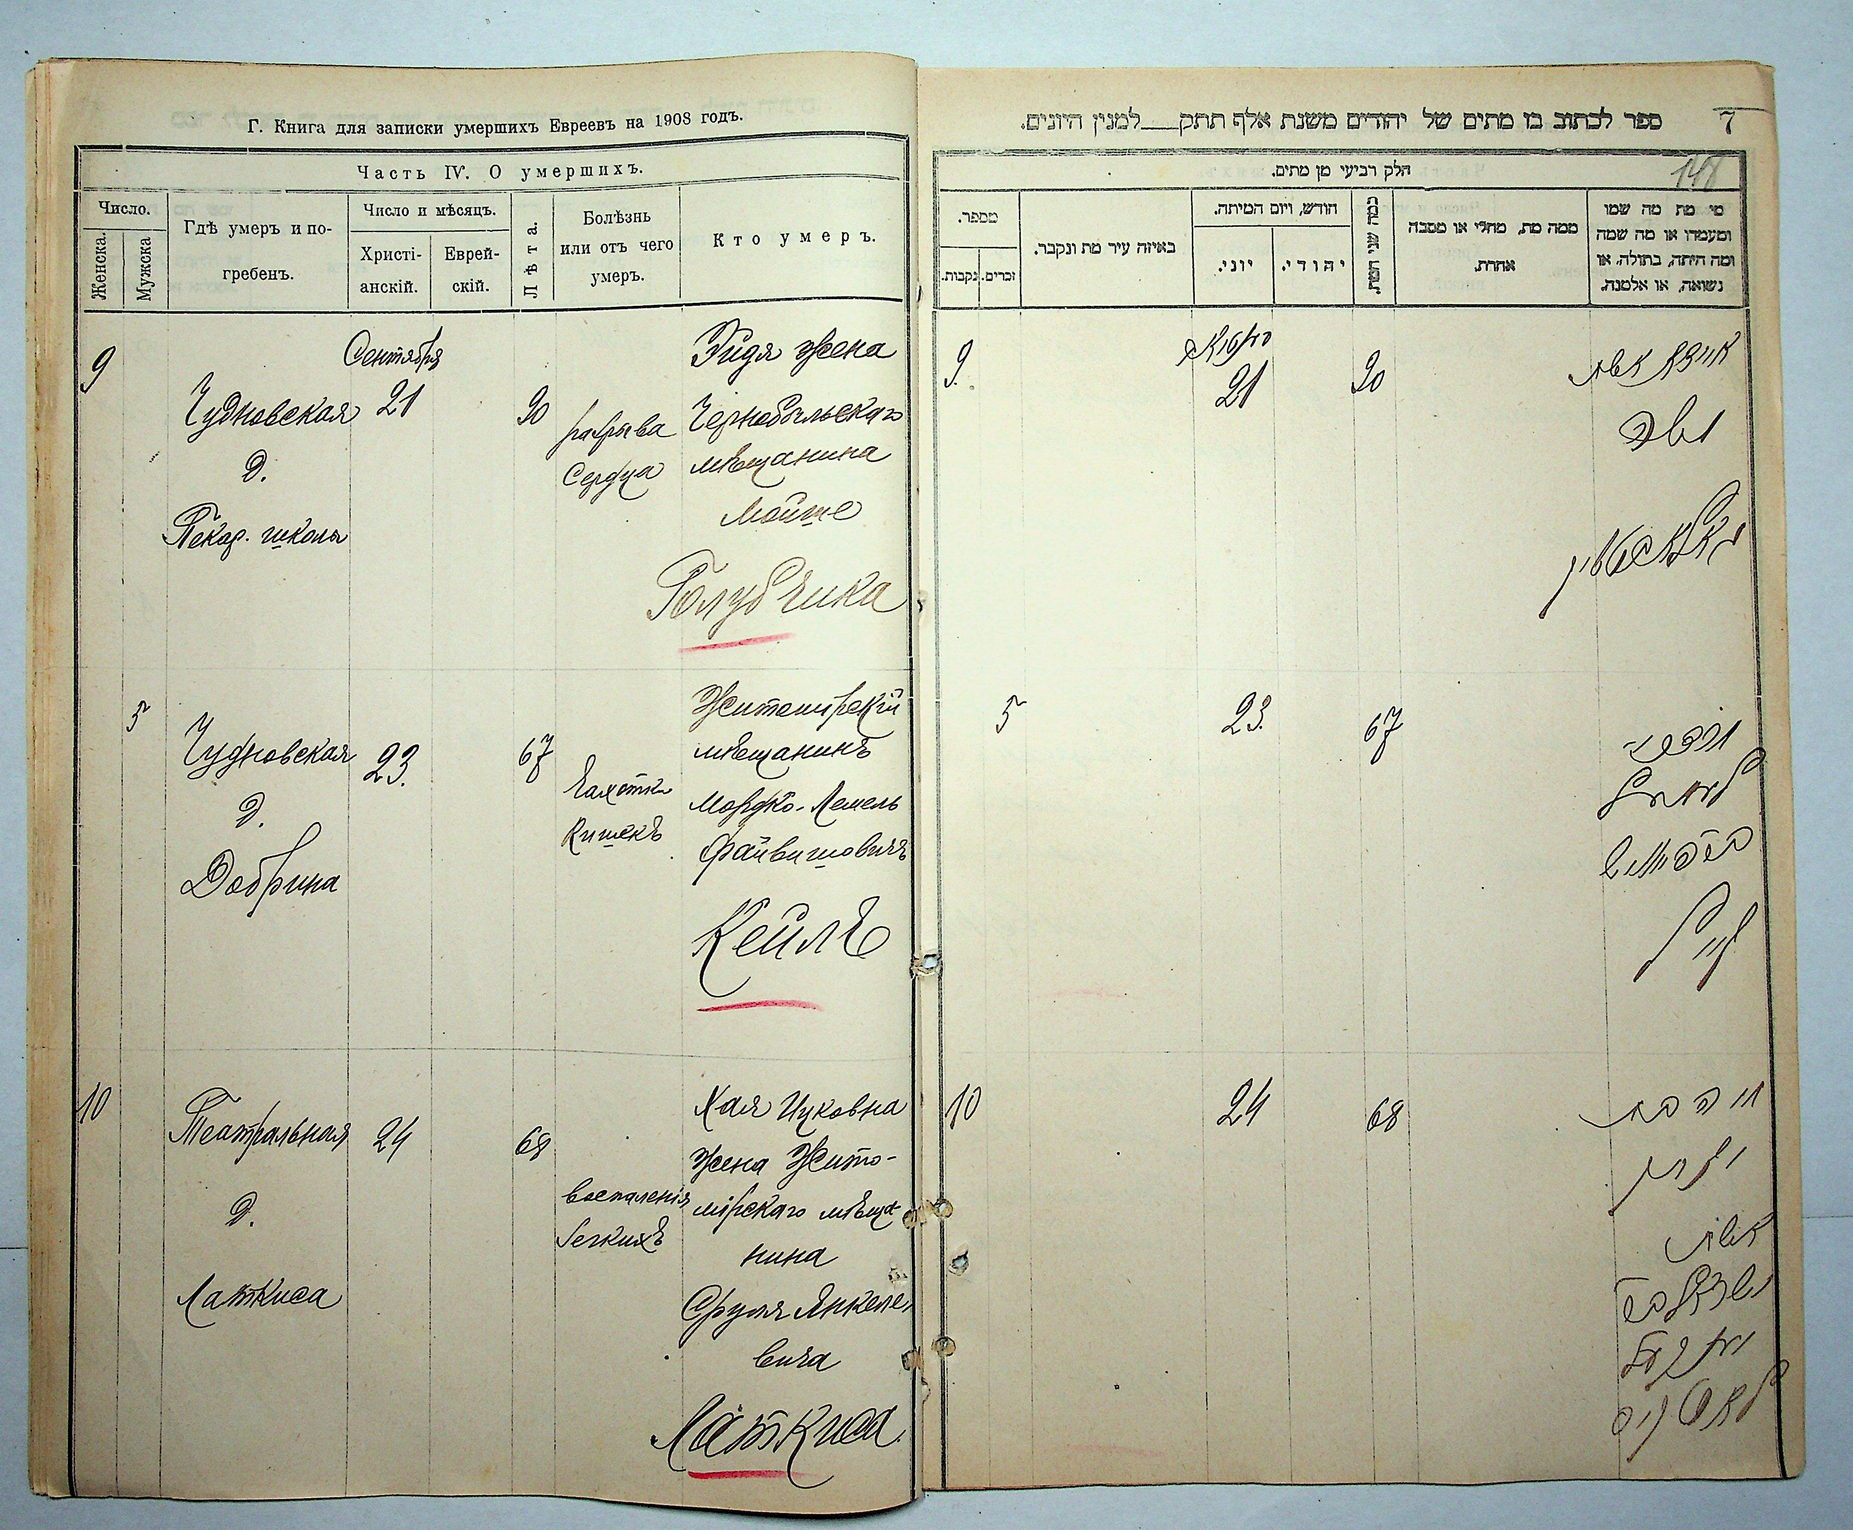 Г. Книга для записки умершихъ Евреевъ на 1908 годъ.
Часть IV. О умершихъ.
Число.
Женска.
Мужска
Гдѣ умеръ и по-
гребенъ.
Число и мѣсяцъ.
Христі-
анскій.
Еврей-
скій.
Лѣта.
Болѣзнь
или отъ чего
умеръ.
Кто умеръ.
9
Чудновская
д.
Пекар. школы
Сентября
21
90
разрыва
Сердца
Эйдя жена
Чернобыльскаго
мѣщанина
Мойше
Голубчика
5
Чудновская
д.
Добрина
23.
67
кишекъ
Житомирскій
мѣщанинъ
Мордко-Лемель
Файвишовичъ
Кейлъ
10
Театральная
д.
Латкиса
24
68
воспаленія
Легкихъ
Хая Ицковна
жена Жито-
мірскаго мѣща
нина
Сруля Янкеле
вича
Латкиса
ספר לכתוב בו מתים של יהודים משנת אלף תתק למנין היונים.
7
148
חלק רביעי מן מתים.
מספר.
נקבות.
זכרים.
באיזה עיר מת ונקבר.
חודש, ויום המיתה.
יוני.
יהודי.
כמה שני המת.
ממה מת, מחלי או מסבה
אחרת.
מי מת מה שמו
ומעמדו או מה שמה
ומה היתה, בתולה, או
נשואה, או אלמנה.
9.
21
90
משה
5
23.
67
מרדכי
10
24
68
חיה בת
יצחק
אשת
ישראל ב״ר